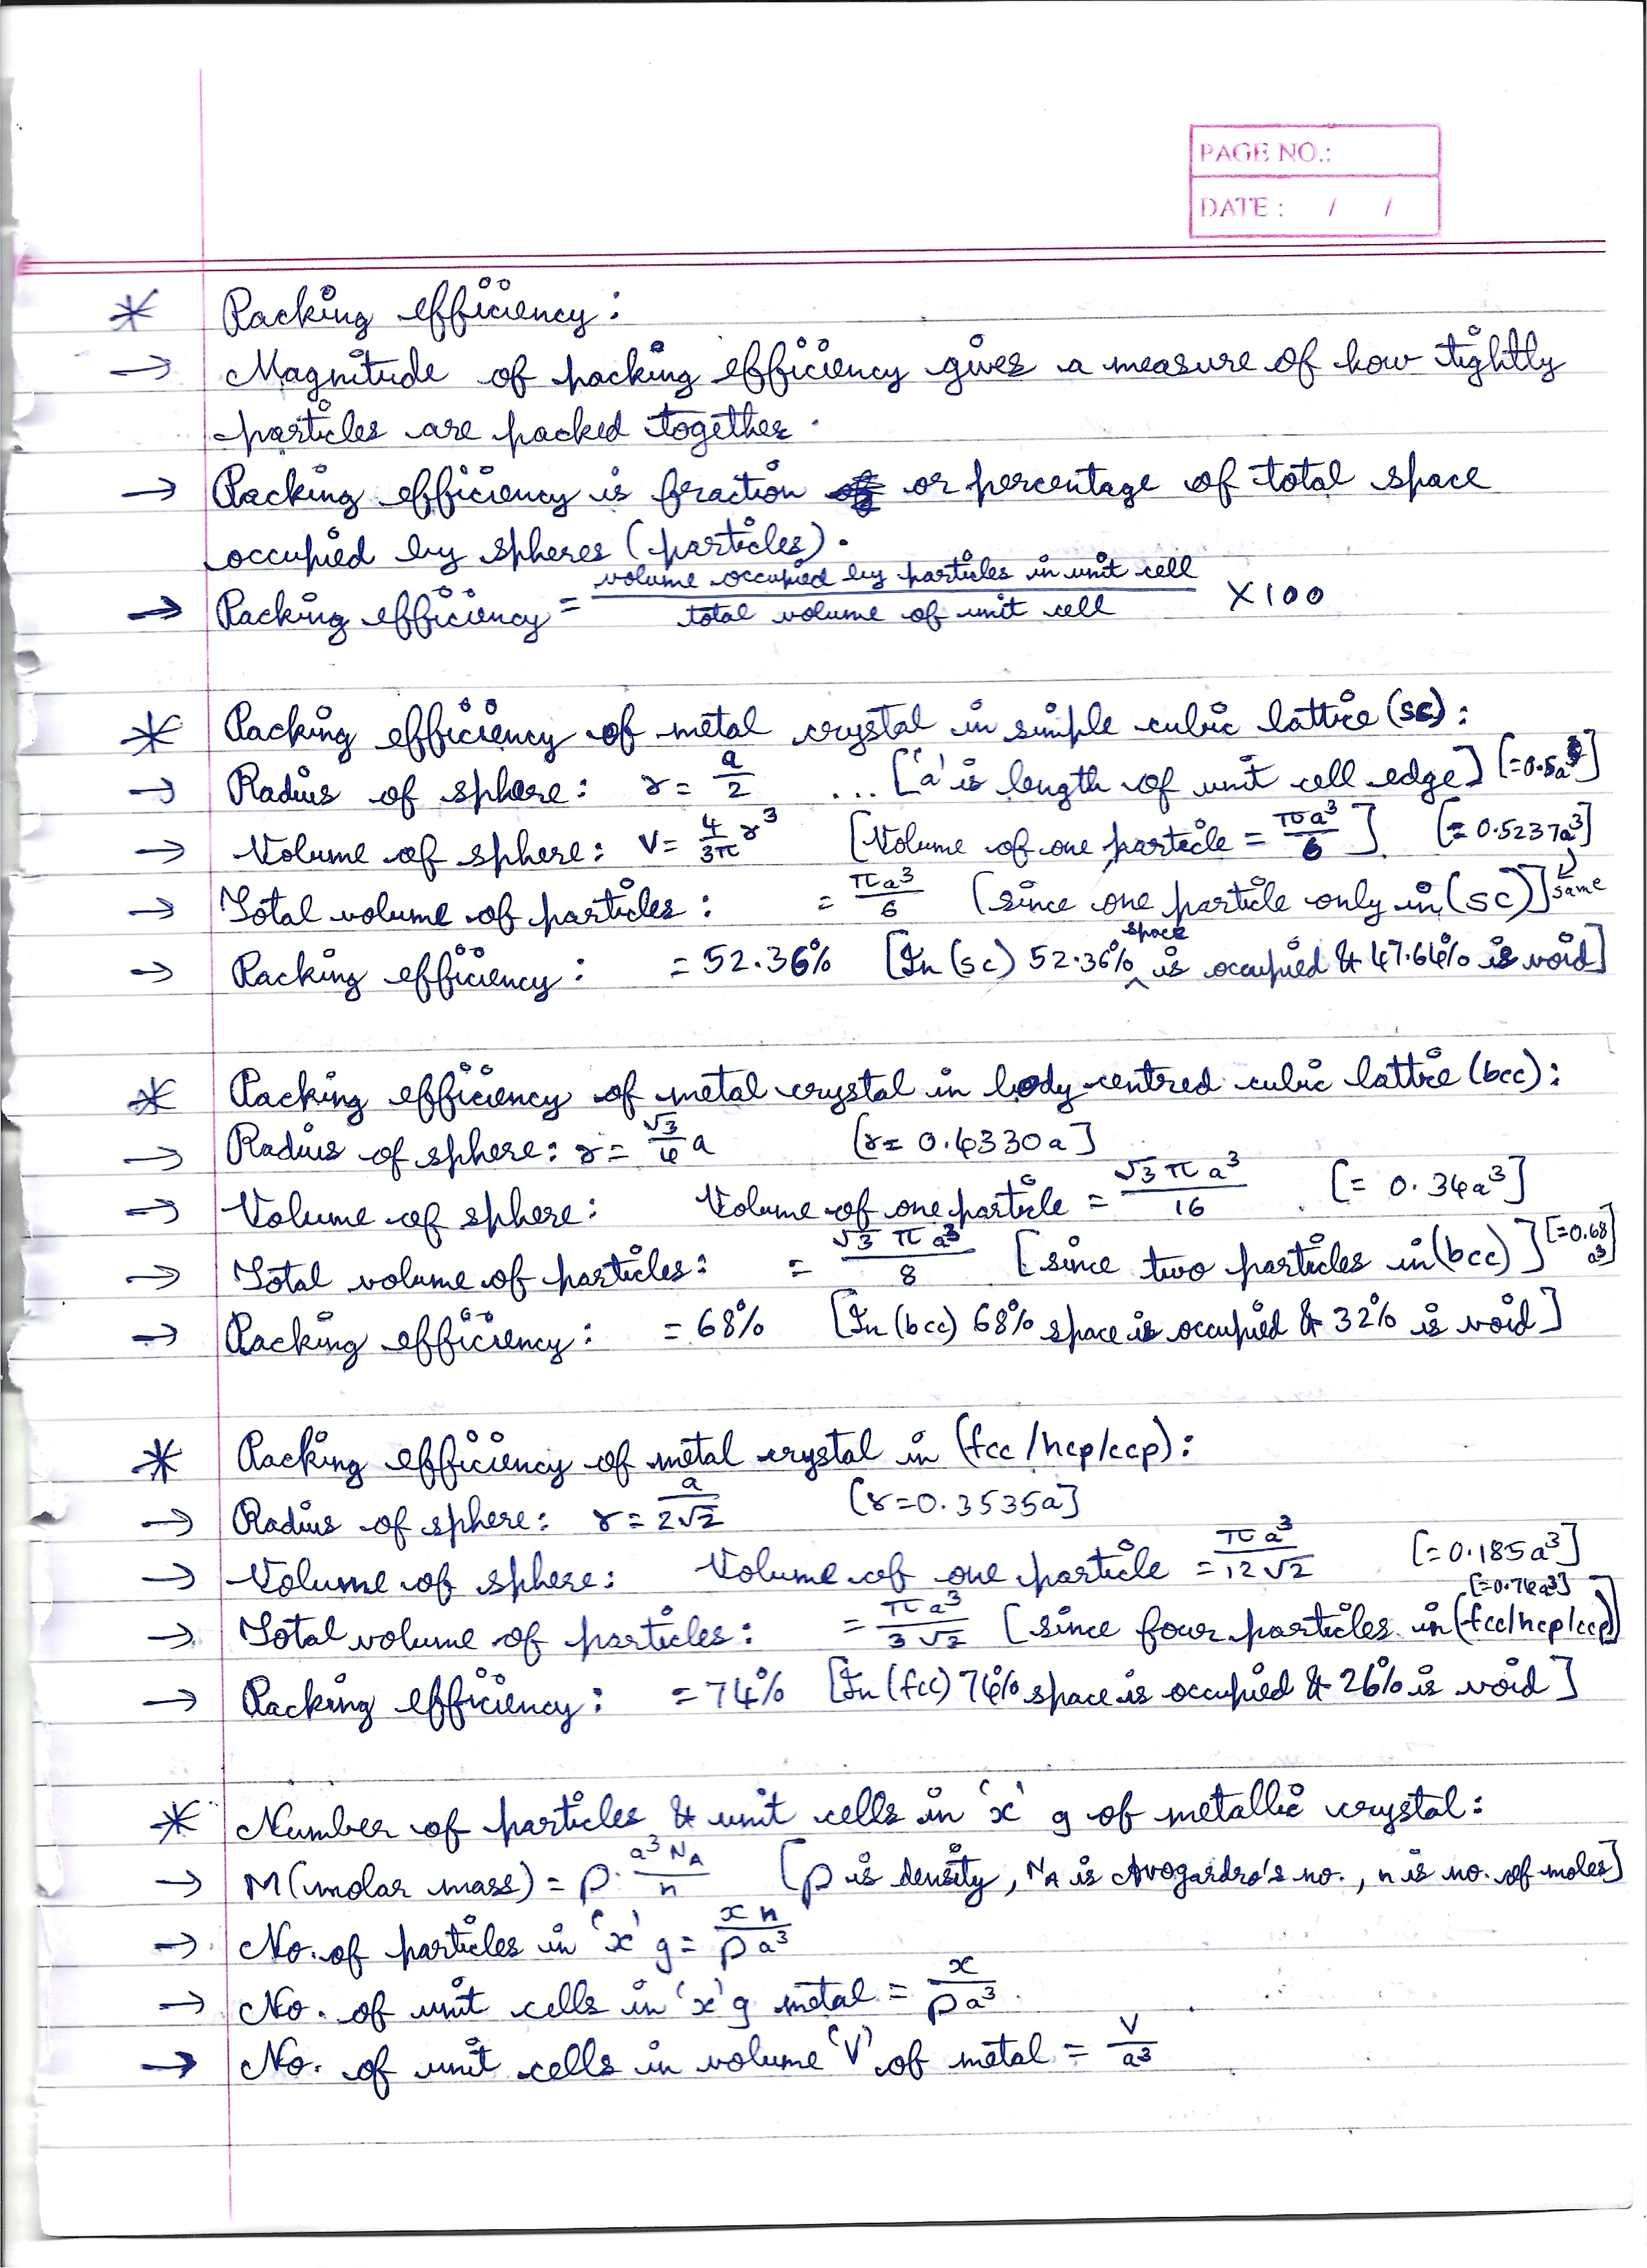 PAGE NO.:
DATE : / /
* Packing efficiency :
→ Magnitude of packing efficiency gives a measure of how tightly
particles are packed together.
→ Packing efficiency is fraction or percentage of total space
occupied by spheres (particles).
→ Packing efficiency = volume occupied by particles in unit cell / total volume of unit cell X100
* Packing efficiency of metal crystal in simple cubic lattice (sc) :
→ Radius of sphere : r = a/2 ... ['a' is length of unit cell edge] [=0.5a]
→ Volume of sphere : V = 4/3π r³ [Volume of one particle = πa³/6] [= 0.5237a³]
→ Total volume of particles : = πa³/6 [since one particle only in (sc)] same
→ Packing efficiency : = 52.36% [In (sc) 52.36% space is occupied & 47.64% is void]
* Packing efficiency of metal crystal in body centred cubic lattice (bcc) :
→ Radius of sphere : r = √3/4 a [r = 0.4330a]
→ Volume of sphere : Volume of one particle = √3 π a³/16 [= 0.34a³]
→ Total volume of particles : = √3 π a³/8 [since two particles in (bcc)] [=0.68 a³]
→ Packing efficiency : = 68% [In (bcc) 68% space is occupied & 32% is void]
* Packing efficiency of metal crystal in (fcc/hcp/ccp) :
→ Radius of sphere : r = a/2√2 [r=0.3535a]
→ Volume of sphere : Volume of one particle = πa³/12√2 [= 0.185a³]
→ Total volume of particles : = πa³/3√2 [since four particles in (fcc/hcp/ccp)] [=0.74a³]
→ Packing efficiency : = 74% [In (fcc) 74% space is occupied & 26% is void]
* Number of particles & unit cells in 'x' g of metallic crystal :
→ M(molar mass) = ρ. a³ N_A/n [ρ is density, N_A is Avogardro's no., n is no. of moles]
→ No. of particles in 'x' g = x n/ρa³
→ No. of unit cells in 'x' g metal = x/ρa³
→ No. of unit cells in volume 'V' of metal = V/a³